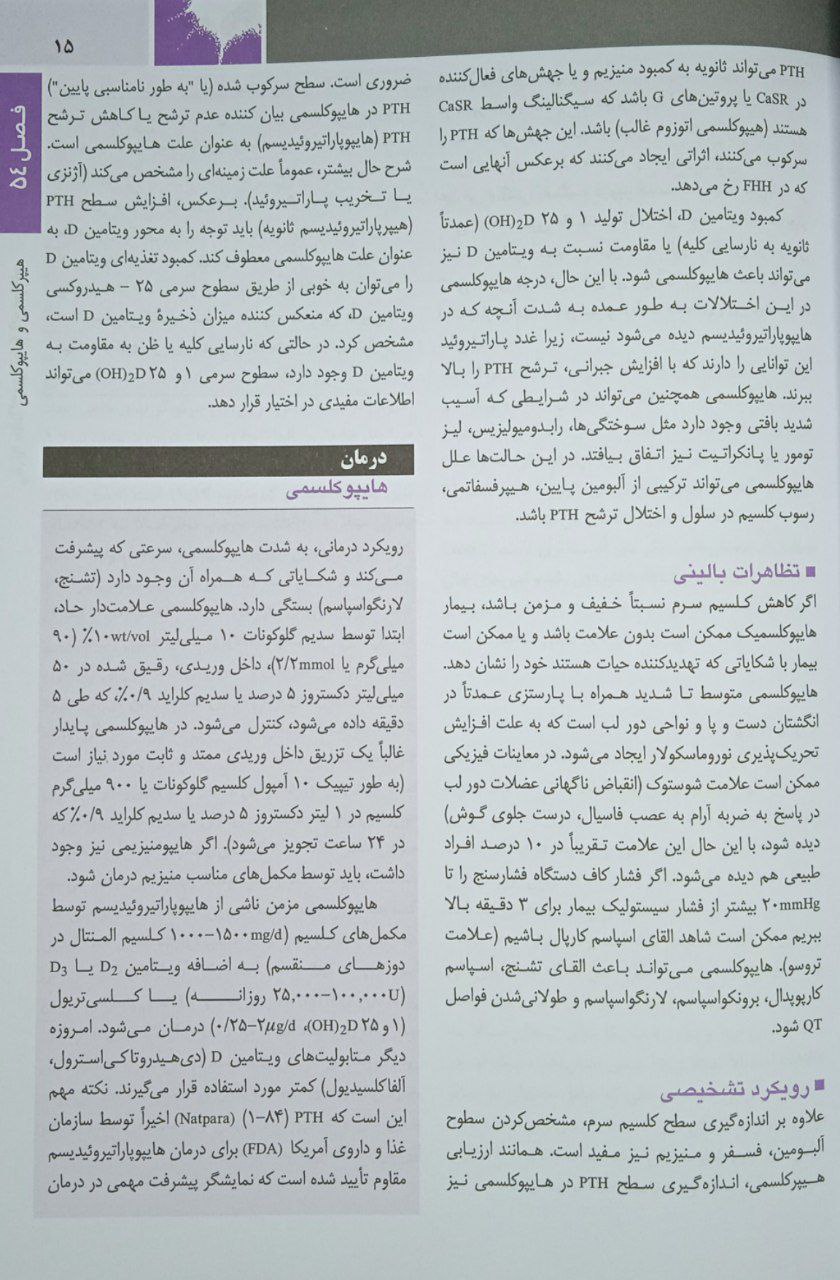 ۱۵
فصل ۵۴
هیپرکلسمی و هایپوکلسمی
PTH می‌تواند ثانویه به کمبود منیزیم و یا جهش‌های فعال‌کننده
در CaSR یا پروتین‌های G باشد که سیگنالینگ واسط CaSR
هستند (هیپوکلسمی اتوزوم غالب) باشد. این جهش‌ها که PTH را
سرکوب می‌کنند، اثراتی ایجاد می‌کنند که برعکس آنهایی است
که در FHH رخ می‌دهد.
کمبود ویتامین D، اختلال تولید ۱ و ۲۵ (OH)₂D (عمدتاً
ثانویه به نارسایی کلیه) یا مقاومت نسبت به ویتامین D نیز
می‌تواند باعث هایپوکلسمی شود. با این حال، درجه هایپوکلسمی
در این اختلالات به طور عمده به شدت آنچه که در
هایپوپاراتیروئیدیسم دیده می‌شود نیست، زیرا غدد پاراتیروئید
این توانایی را دارند که با افزایش جبرانی، ترشح PTH را بالا
ببرند. هایپوکلسمی همچنین می‌تواند در شرایطی که آسیب
شدید بافتی وجود دارد مثل سوختگی‌ها، رابدومیولیزیس، لیز
تومور یا پانکراتیت نیز اتفاق بیافتد. در این حالت‌ها علل
هایپوکلسمی می‌تواند ترکیبی از آلبومین پایین، هیپرفسفاتمی،
رسوب کلسیم در سلول و اختلال ترشح PTH باشد.
■ تظاهرات بالینی
اگر کاهش کلسیم سرم نسبتاً خفیف و مزمن باشد، بیمار
هایپوکلسمیک ممکن است بدون علامت باشد و یا ممکن است
بیمار با شکایاتی که تهدیدکننده حیات هستند خود را نشان دهد.
هایپوکلسمی متوسط تا شدید همراه با پارستزی عمدتاً در
انگشتان دست و پا و نواحی دور لب است که به علت افزایش
تحریک‌پذیری نوروماسکولار ایجاد می‌شود. در معاینات فیزیکی
ممکن است علامت شوستوک (انقباض ناگهانی عضلات دور لب
در پاسخ به ضربه آرام به عصب فاسیال، درست جلوی گوش)
دیده شود، با این حال این علامت تقریباً در ۱۰ درصد افراد
طبیعی هم دیده می‌شود. اگر فشار کاف دستگاه فشارسنج را تا
۲۰mmHg بیشتر از فشار سیستولیک بیمار برای ۳ دقیقه بالا
ببریم ممکن است شاهد القای اسپاسم کارپال باشیم (علامت
تروسو). هایپوکلسمی می‌تواند باعث القای تشنج، اسپاسم
کارپوپدال، برونکواسپاسم، لارنگواسپاسم و طولانی‌شدن فواصل
QT شود.
■ رویکرد تشخیصی
علاوه بر اندازه‌گیری سطح کلسیم سرم، مشخص‌کردن سطوح
آلبومین، فسفر و منیزیم نیز مفید است. همانند ارزیابی
هیپرکلسمی، اندازه‌گیری سطح PTH در هایپوکلسمی نیز
ضروری است. سطح سرکوب شده (یا "به طور نامناسبی پایین")
PTH در هایپوکلسمی بیان کننده عدم ترشح یا کاهش ترشح
PTH (هایپوپاراتیروئیدیسم) به عنوان علت هایپوکلسمی است.
شرح حال بیشتر، عموماً علت زمینه‌ای را مشخص می‌کند (آژنزی
یا تخریب پاراتیروئید). برعکس، افزایش سطح PTH
(هیپرپاراتیروئیدیسم ثانویه) باید توجه را به محور ویتامین D، به
عنوان علت هایپوکلسمی معطوف کند. کمبود تغذیه‌ای ویتامین D
را می‌توان به خوبی از طریق سطوح سرمی ۲۵ - هیدروکسی
ویتامین D، که منعکس کننده میزان ذخیرهٔ ویتامین D است،
مشخص کرد. در حالتی که نارسایی کلیه یا ظن به مقاومت به
ویتامین D وجود دارد، سطوح سرمی ۱ و ۲۵ (OH)₂D می‌تواند
اطلاعات مفیدی در اختیار قرار دهد.
درمان
هایپوکلسمی
رویکرد درمانی، به شدت هایپوکلسمی، سرعتی که پیشرفت
می‌کند و شکایاتی که همراه آن وجود دارد (تشنج،
لارنگواسپاسم) بستگی دارد. هایپوکلسمی علامت‌دار حاد،
ابتدا توسط سدیم گلوکونات ۱۰ میلی‌لیتر ۱۰wt/vol٪ (۹۰
میلی‌گرم یا ۲/۲mmol)، داخل وریدی، رقیق شده در ۵۰
میلی‌لیتر دکستروز ۵ درصد یا سدیم کلراید ۰/۹٪، که طی ۵
دقیقه داده می‌شود، کنترل می‌شود. در هایپوکلسمی پایدار
غالباً یک تزریق داخل وریدی ممتد و ثابت مورد نیاز است
(به طور تیپیک ۱۰ آمپول کلسیم گلوکونات یا ۹۰۰ میلی‌گرم
کلسیم در ۱ لیتر دکستروز ۵ درصد یا سدیم کلراید ۰/۹٪ که
در ۲۴ ساعت تجویز می‌شود). اگر هایپومنیزیمی نیز وجود
داشت، باید توسط مکمل‌های مناسب منیزیم درمان شود.
هایپوکلسمی مزمن ناشی از هایپوپاراتیروئیدیسم توسط
مکمل‌های کلسیم (۱۰۰۰-۱۵۰۰mg/d کلسیم المنتال در
دوزهای منقسم) به اضافه ویتامین D₂ یا D₃
(۲۵,۰۰۰-۱۰۰,۰۰۰U روزانه) یا کلسی‌تریول
(۱ و ۲۵ (OH)₂D، ۰/۲۵-۲μg/d) درمان می‌شود. امروزه
دیگر متابولیت‌های ویتامین D (دی‌هیدروتاکی‌استرول،
آلفاکلسیدیول) کمتر مورد استفاده قرار می‌گیرند. نکته مهم
این است که PTH (۱-۸۴) (Natpara) اخیراً توسط سازمان
غذا و داروی آمریکا (FDA) برای درمان هایپوپاراتیروئیدیسم
مقاوم تأیید شده است که نمایشگر پیشرفت مهمی در درمان